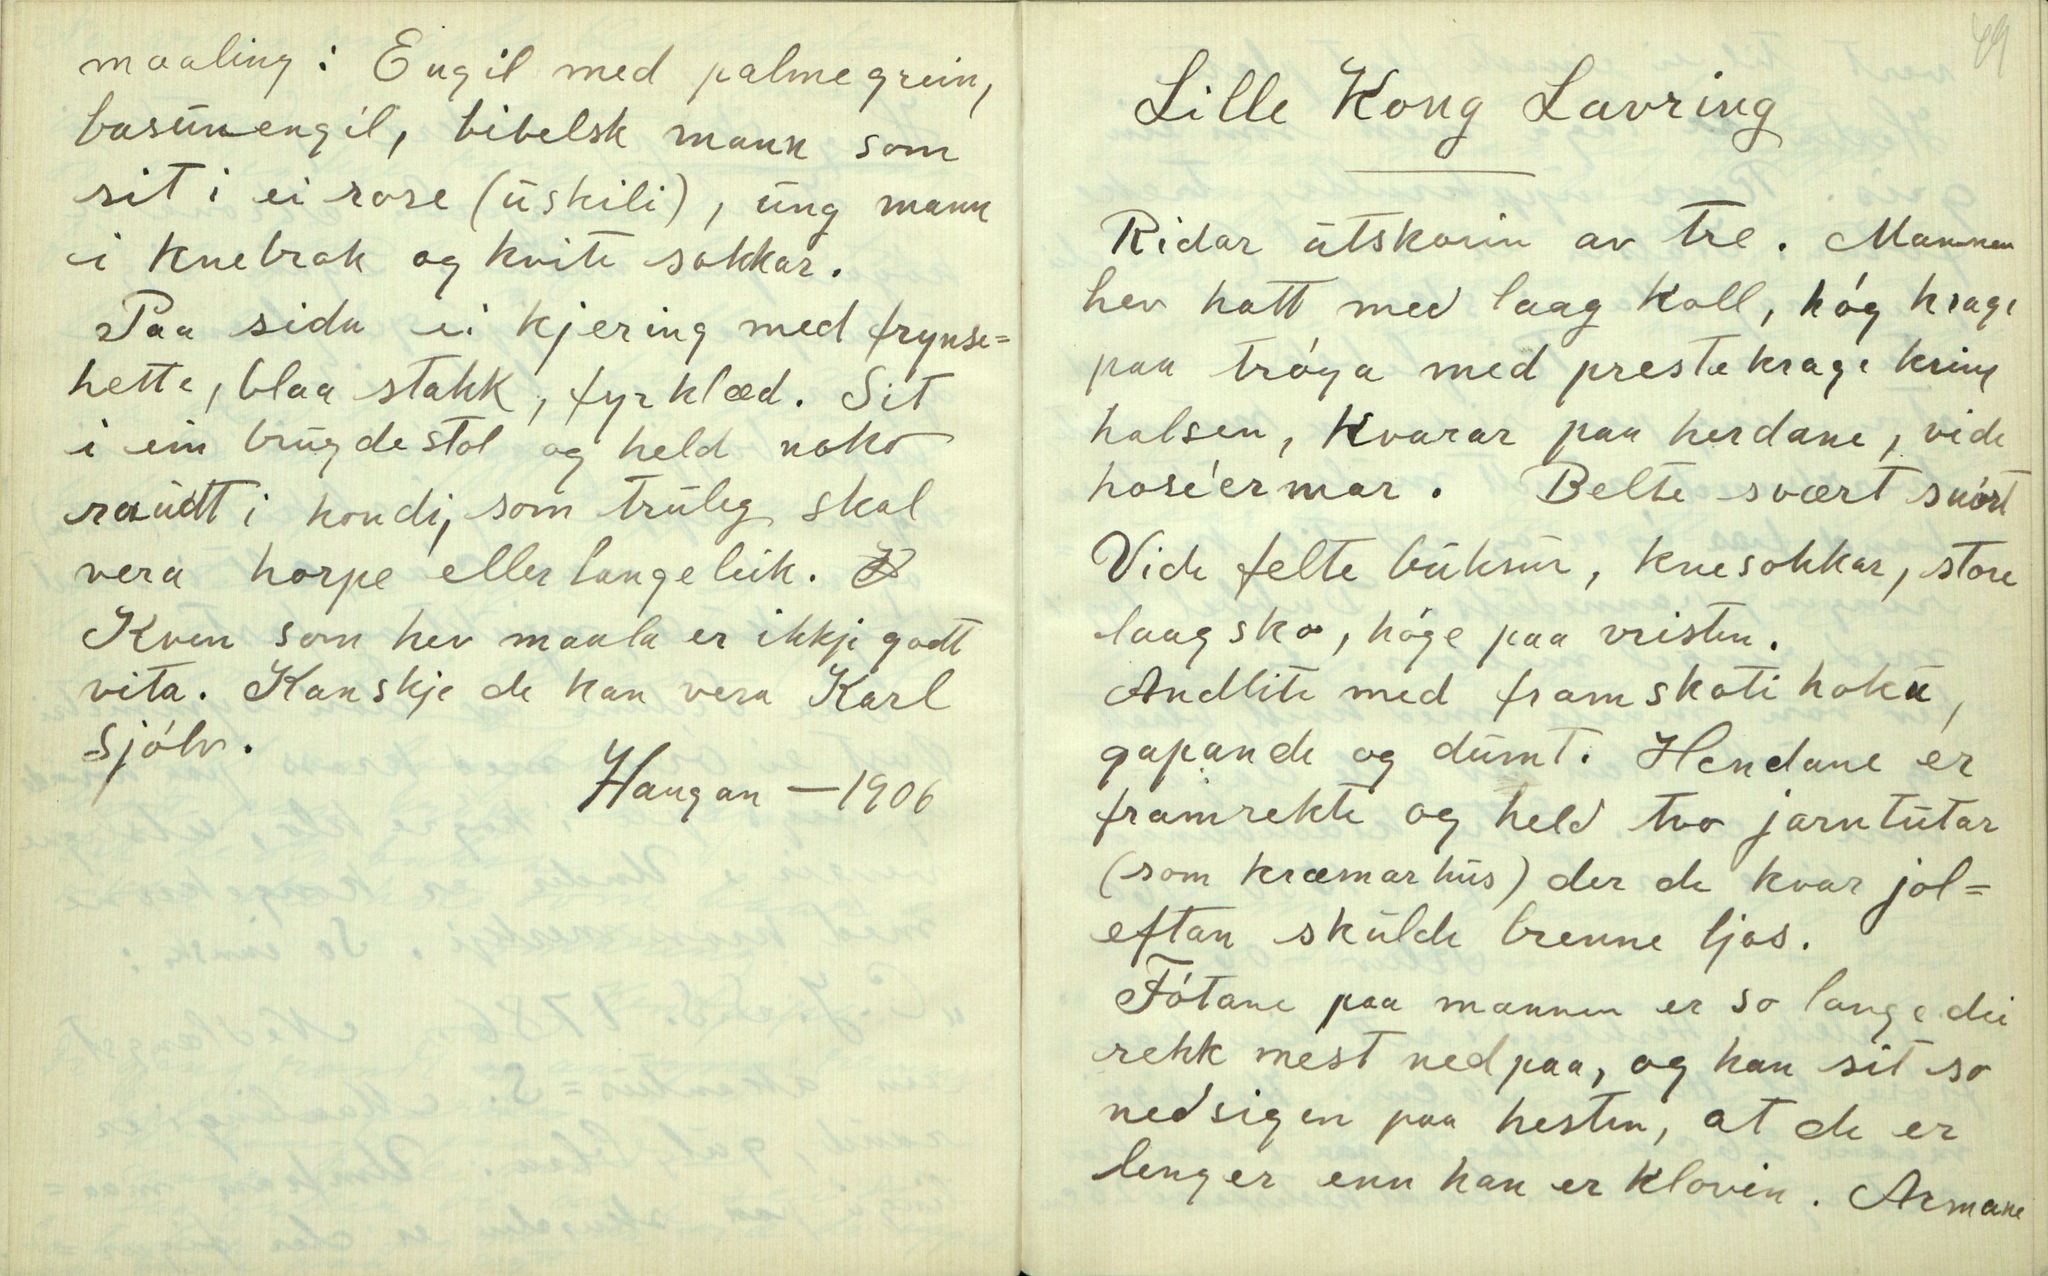 maaling: Engil med palmegrein,
basunengil, bibelsk mann som
sit i ei rose (uskili), ung mann
i knebrok og kvite sokkar.
Paa sida ei kjering med frynse=
hette, blaa stakk, fyrklæd. Sit
i ein brugdestol og held noko
raudt i hondi, som truleg skal
vera horpe eller langeleik.
Kven som hev maala er ikkje godt
vita. Kanskje de kan vera Karl
sjólv.
Haugan — 1906
49
Lille Kong Lavring
Ridar utskorin av tre. Mannen
hev hatt med laag koll, hóg krage
paa tróya med prestekrage kring
halsen, kvarar paa herdane, vide
hoseermar. Belte svært snórt
Vide felte buksur, knesokkar, store
laagsko, hóge paa vristen.
Andlite med framskoti hoku,
gapande og dumt. Hendane er
framrekte og held tvo jarntutar
(som kræmarhus) der de kvar jol=
eftan skulde brenne ljos.
Fótane paa mannen er so lange dei
rekk mest nedpaa, og han sit so
nedsigen paa hesten, at de er
lenger enn han er klovin. Armane